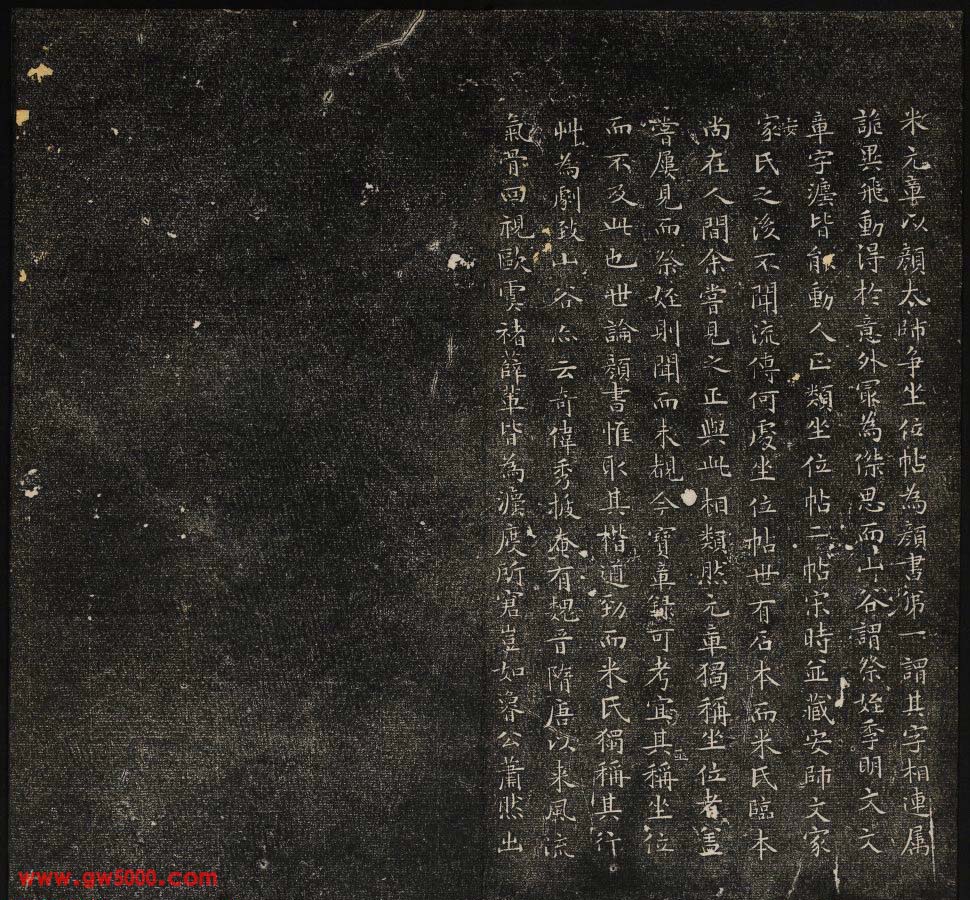 米元章以顏太師爭坐位帖為顏書第一謂其字相連属
詭異飛動得於意外冣為傑思而山谷謂祭姪季明文文
章字灋皆能動人正類坐位帖二帖宋時並藏安師文家
安
家氏之後不聞流傳何處坐位帖世有石本而米氏臨本
尚在人間余嘗見之正與此相類然元章獨稱坐位者盖
嘗屢見而祭姪則聞而未覩今寶章録可考宜其稱坐位
並
而不及此也世論顏書惟取其楷遒勁而米氏獨稱其行
艸為劇致山谷亦云奇偉秀拔奄有魏晉隋唐以来風流
氣骨回視歐虞褚薛軰皆為灋度所窘豈如魯公蕭然出
www.gw5000.com